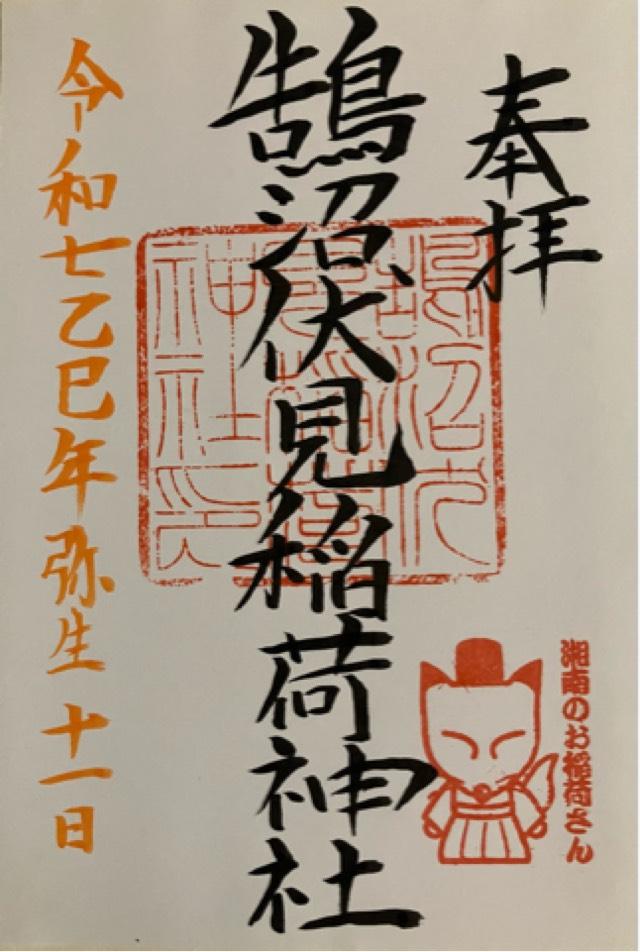 奉拝
鵠沼伏見稲荷神社
鵠沼伏
見稲荷
神社印
令和七乙巳年弥生十一日
湘南のお稲荷さん